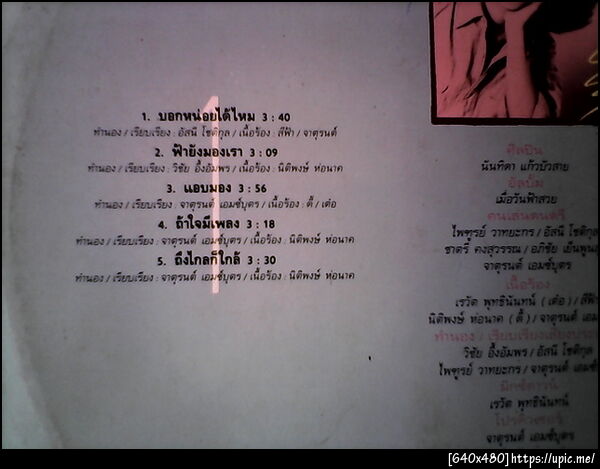 1. บอกหน่อยได้ไหม 3 : 40
ทำนอง / เรียบเรียง : อัสนี โชติกุล / เนื้อร้อง : สีฟ้า / จาตุรนต์
2. ฟ้ายังมองเรา 3 : 09
ทำนอง / เรียบเรียง : วิชัย อึ้งอัมพร / เนื้อร้อง : นิติพงษ์ ห่อนาค
3. แอบมอง 3 : 56
ทำนอง / เรียบเรียง : จาตุรนต์ เอมซ์บุตร / เนื้อร้อง : ตี้ / เต๋อ
4. ถ้าใจมีเพลง 3 : 18
ทำนอง / เรียบเรียง : จาตุรนต์ เอมซ์บุตร / เนื้อร้อง : นิติพงษ์ ห่อนาค
5. ถึงไกลก็ใกล้ 3 : 30
ทำนอง / เรียบเรียง : จาตุรนต์ เอมซ์บุตร / เนื้อร้อง : นิติพงษ์ ห่อนาค
1
ศิลปิน
นันทิดา แก้วบัวสาย
อัลบั้ม
เมื่อวันฟ้าสวย
คนเล่นดนตรี
ไพฑูรย์ วาทยะกร / อัสนี โชติกุล
ชาตรี คงสุวรรณ / อภิไชย เย็นพูน
จาตุรนต์ เอมซ์บุตร
เนื้อร้อง
เรวัต พุทธินันทน์ ( เต๋อ ) / สีฟ้า
นิติพงษ์ ห่อนาค ( ตี้ ) / จาตุรนต์ เอมซ์
ทำนอง / เรียบเรียงเสียงประ
วิชัย อึ้งอัมพร / อัสนี โชติกุล
ไพฑูรย์ วาทยะกร / จาตุรนต์ เอมซ์
มิกซ์ดาวน์
เรวัต พุทธินันทน์
โปรดิวเซอร์
จาตุรนต์ เอมซ์บุตร
[640x480]https://upic.me/